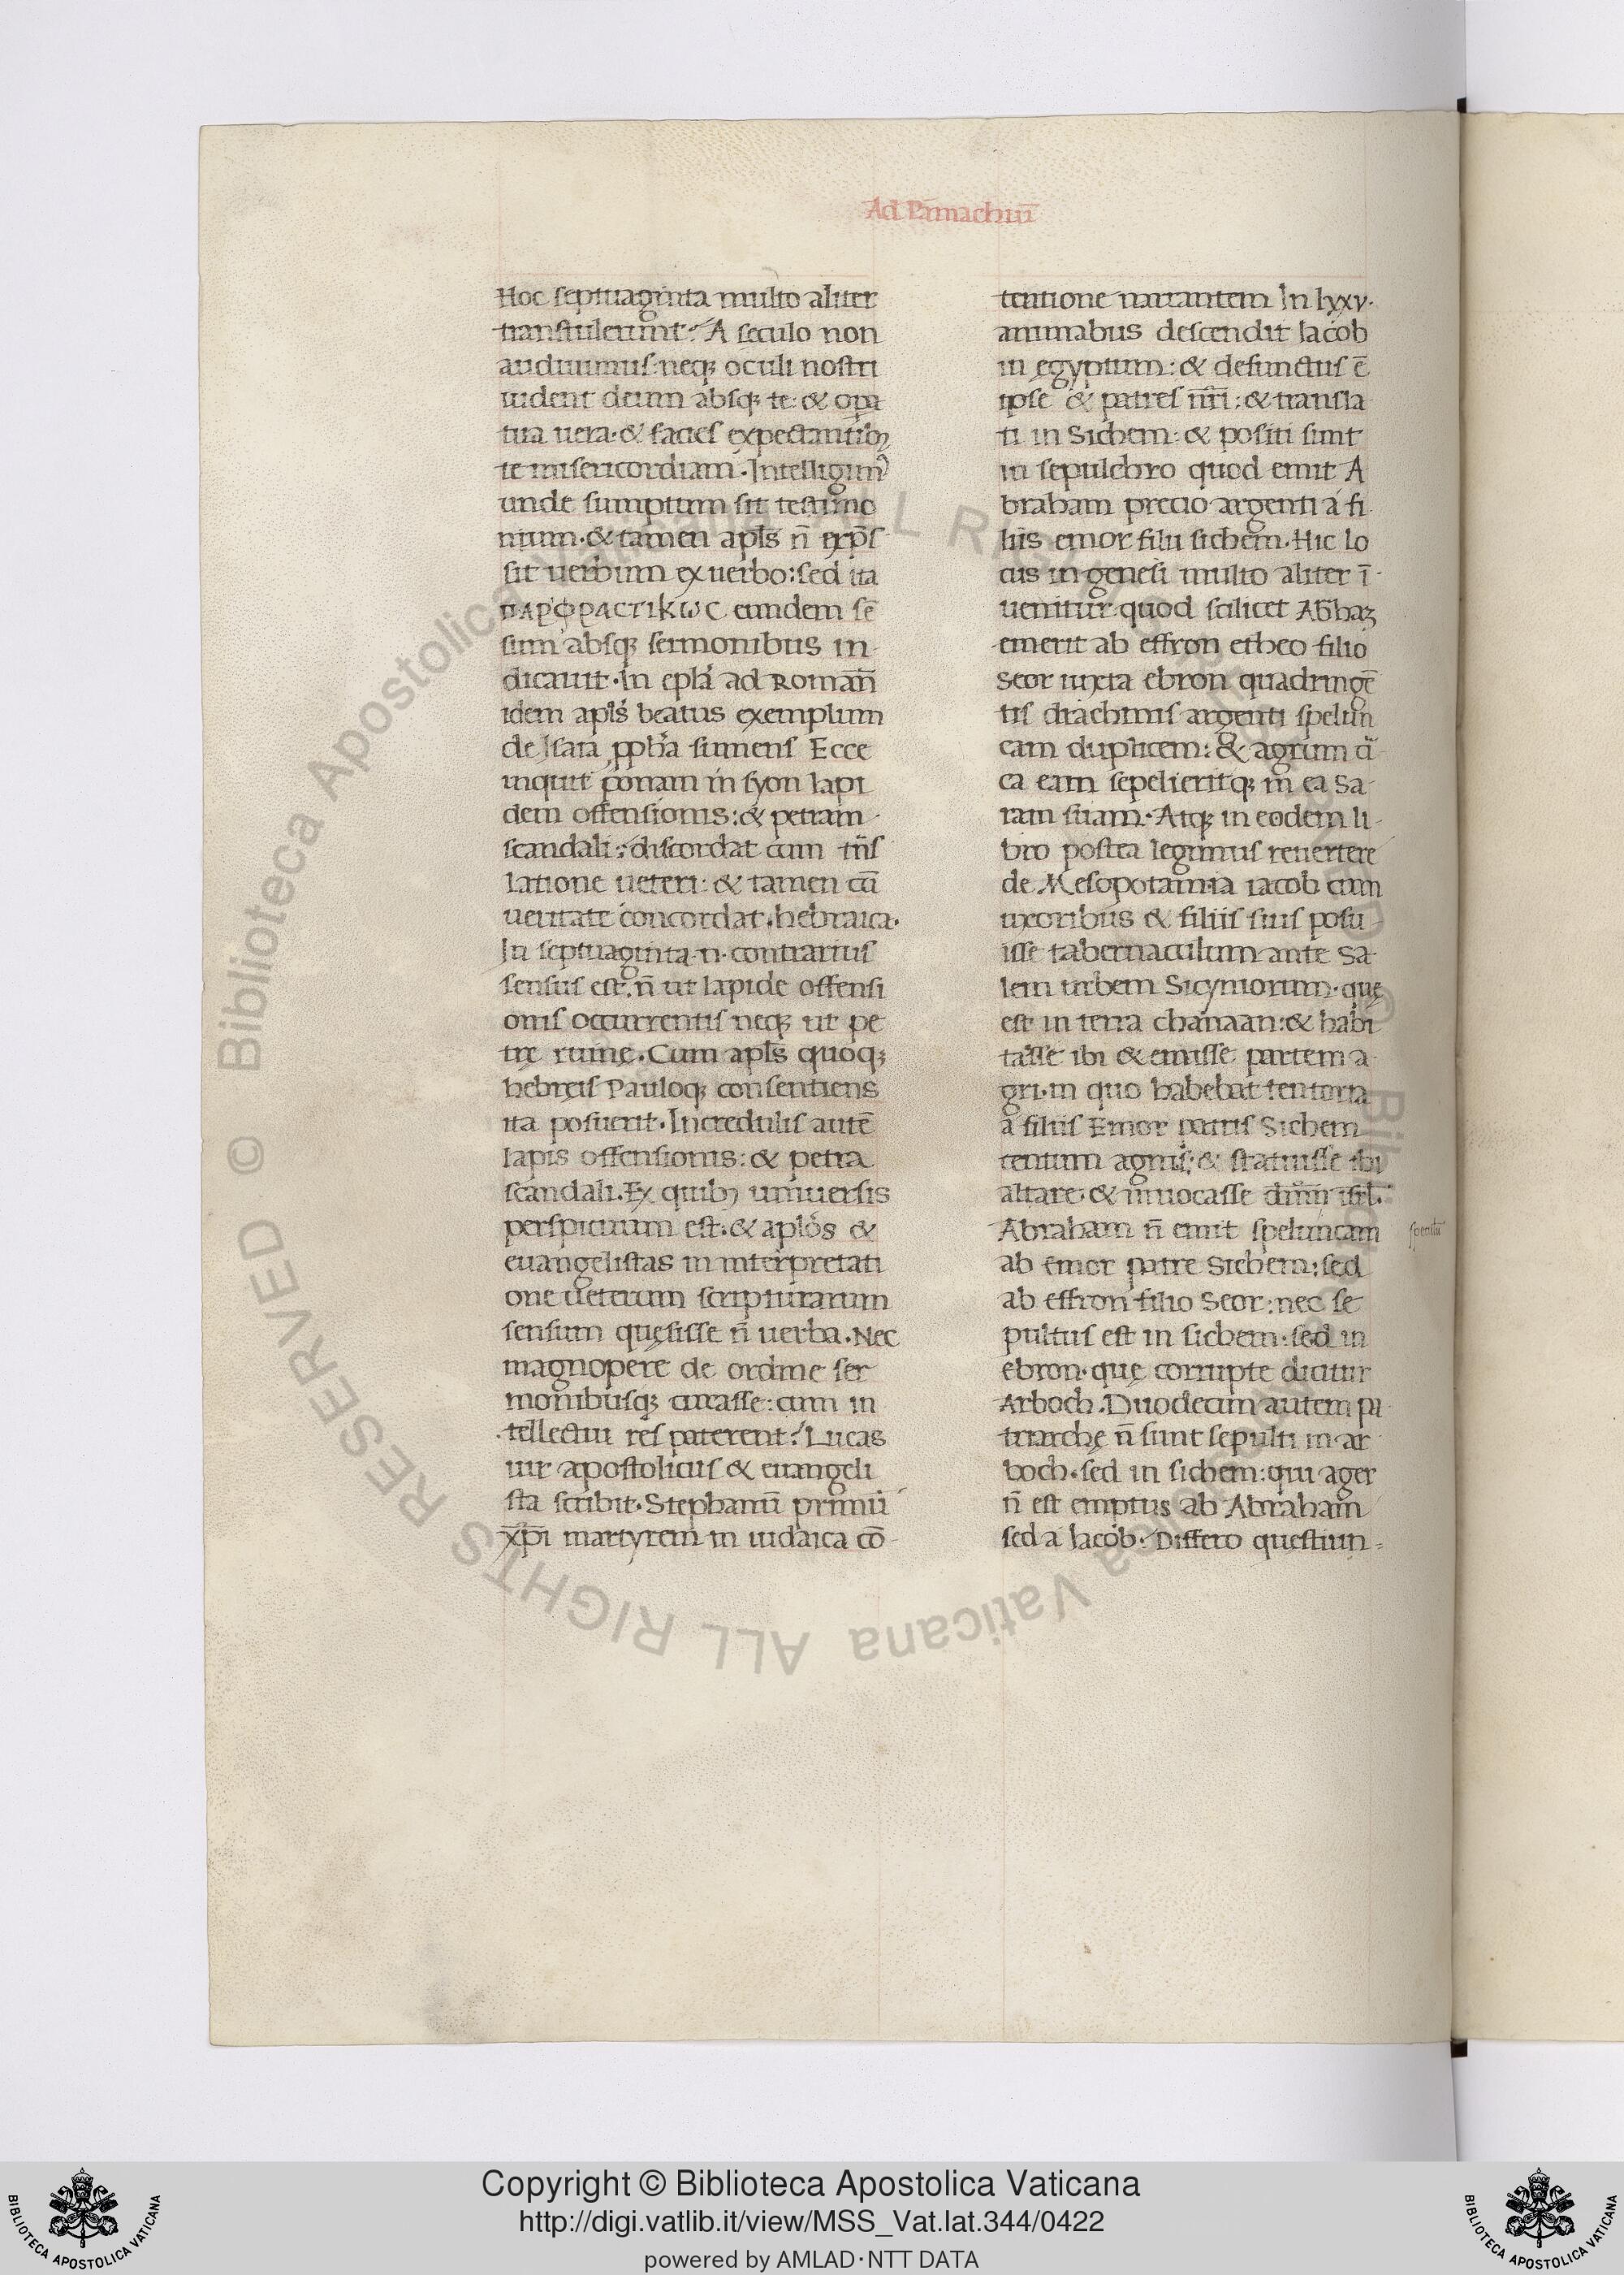 Ad Pāmachiū
Hoc septuaginta multo aliter
transtulerunt: A seculo non
audiuimus: neq; oculi nostri
uident deum absq; te: & opa
tua uera. & facies expectantib;
te misericordiam. Intelligim
unde sumptum sit testimo
nium. & tamen apls n̄ exp̄s
sit uerbum ex uerbo: sed ita
ΠΑΡΦΡΑCΤΙΚωC eundem sē
sum absq; sermonibus in
dicauit. In epla ad Roman̄
idem apls beatus exemplum
de Isaia ppha sumens Ecce
inquit ponam in syon lapi
dem offensionis: & petram
scandali: discordat cum trīs
latione ueteri: & tamen cū
ueritate concordat hebraica.
In septuaginta n. contrarius
sensus est. n̄ ut lapide offensi
onis occurrentis neq; ut pe
trę ruinę. Cum apls quoq;
hebreis Pauloq; consentiens
ita posuerit. Incredulis autē
lapis offensionis: & petra
scandali. Ex quib; uniuersis
perspicuum est. & aplos &
euangelistas in interpretati
one ueterum scripturarum
sensum quęsisse n̄ uerba. Nec
magnopere de ordine ser
monibusq; curasse: cum in
tellectui res paterent. Lucas
uir apostolicus & euangeli
sta scribit. Stephanū primū
xp̄i martyrem in iudaica cō
tentione narrantem In lxxv.
animabus descendit Iacob
in egyptum: & defunctus ē
ipse & patres nr̄i: & transla
ti in Sichem: & positi sunt
in sepulchro quod emit A
braham precio argenti a fi
liis emor filii sichem. Hic lo
cus in genesi multo aliter ī
uenitur quod scilicet Abhaz
emerit ab effron etheo filio
Seor iuxta ebron quadringē
tis drachmis argenti spelun
cam duplicem: & agrum cī
ca eam sepelieritq; in ea Sa
ram suam. Atq; in eodem li
bro postea legimus reuertere
de Mesopotamia iacob cum
uxoribus & filiis suis posu
isse tabernaculum ante Sa
lem urbem Sicymorum. quę
est in terra chanaan: & habi
tasse ibi & emisse partem a
gri. in quo habebat tentoria
a filiis Emor patris Sichem
centum agnis: & statuisse ibi
altare. & inuocasse dūm isrl.
Abraham n̄ emit speluncam
ab emor patre Sichem: sed
ab effron filio Seor: nec se
pultus est in sichem. sed in
ebron. quę corrupte dicitur
Arboch. Duodecim autem pa
triarchę n̄ sunt sepulti in ar
boch. sed in sichem: qui ager
n̄ est emptus ab Abraham
sed a Iacob. Differo questiun=
Copyright © Biblioteca Apostolica Vaticana
http://digi.vatlib.it/view/MSS_Vat.lat.344/0422
powered by AMLAD·NTT DATA